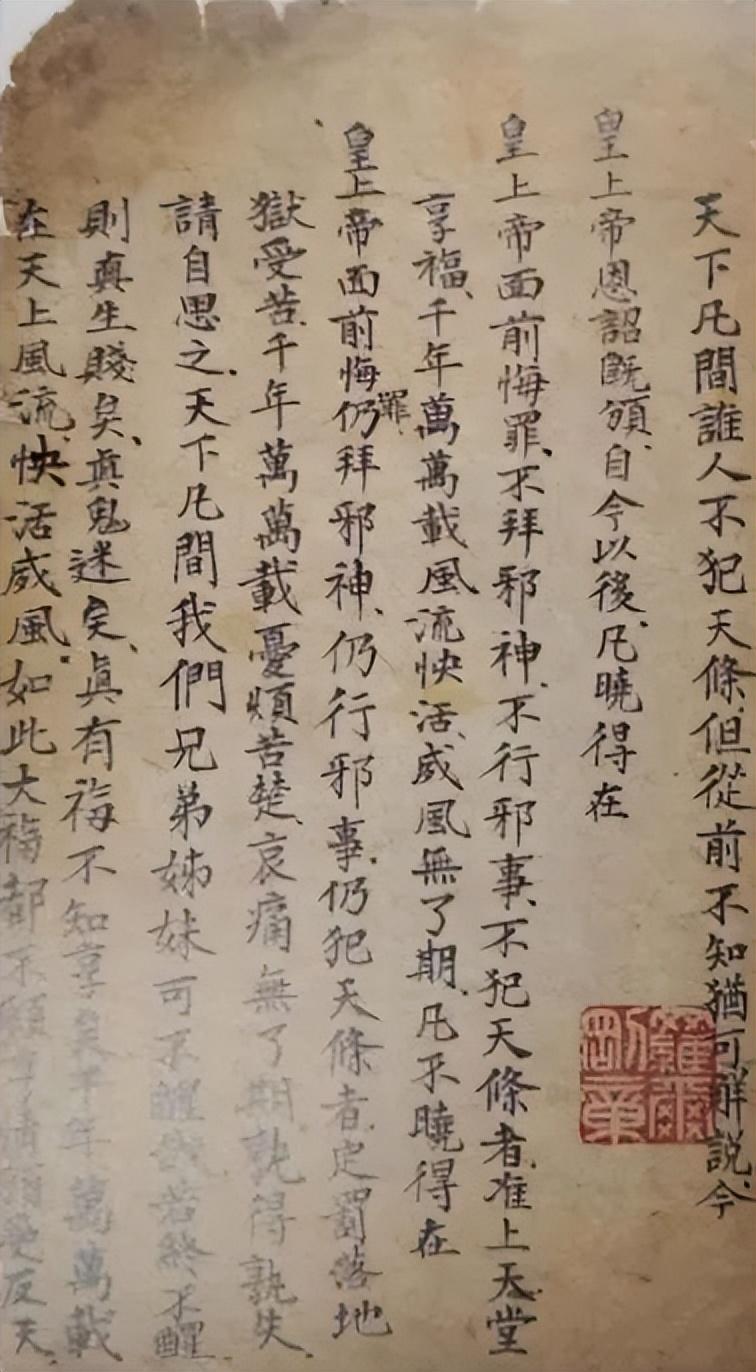 天下凡間誰人不犯天條、但從前不知猶可解説、今
皇上帝恩詔既頒、自今以後、凡曉得在
皇上帝面前悔罪、不拜邪神、不行邪事、不犯天條者、准上天堂
享福、千年萬萬載風流快活、威風無了期、凡不曉得在
皇上帝面前悔罪、仍拜邪神、仍行邪事、仍犯天條者、定罰落地
獄受苦、千年萬萬載憂煩苦楚、哀痛無了期、孰得孰失、
請自思之、天下凡間我們兄弟姊妹可不醒哉、若終不醒、
則真生賤矣、真鬼迷矣、真有福不知享矣、千年萬萬載
在天上風流快活威風、如此大福都不願享、情願變反天、